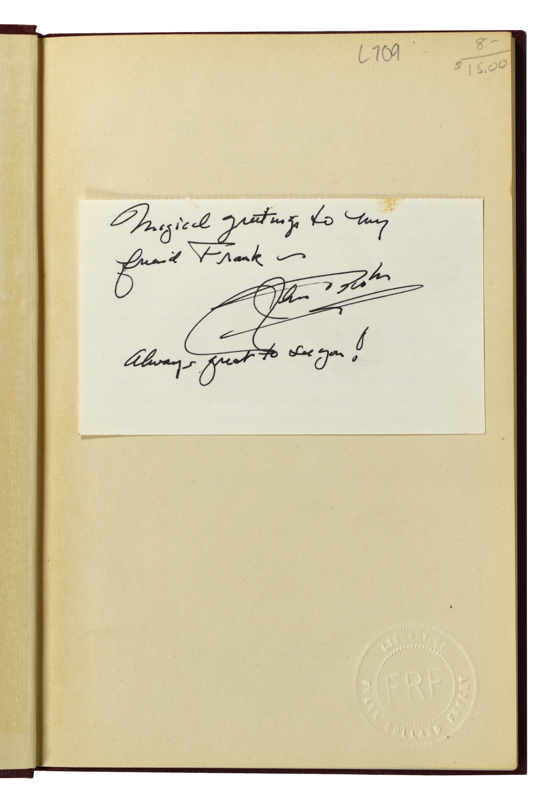 L709
8-
$15.00
Magical greetings to my
friend Frank ~
John
Always great to see you!
LIBRARY OF
FRF
FRANK ROLLAND